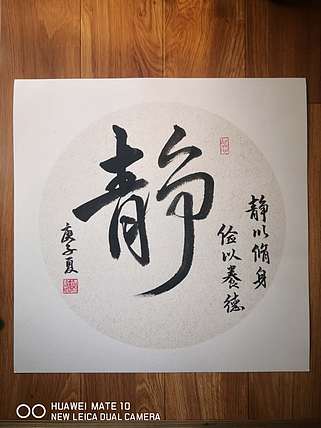 静
静以脩身
俭以养德
庚子夏
HUAWEI MATE 10
NEW LEICA DUAL CAMERA